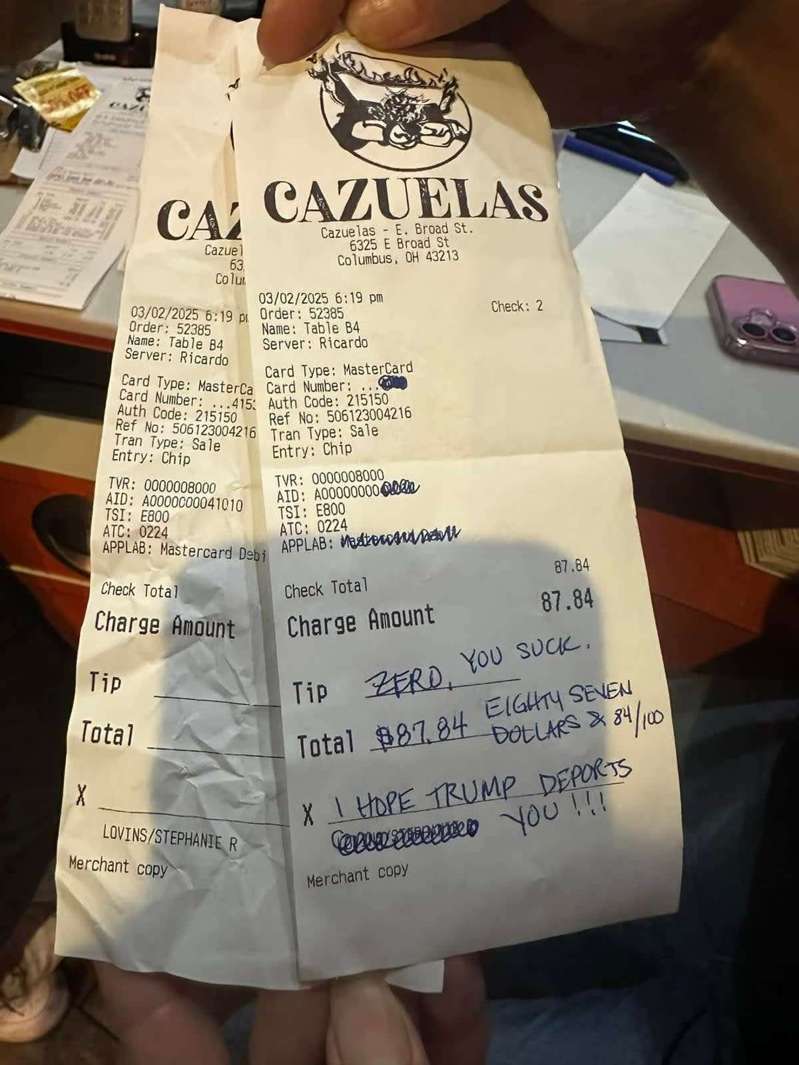 CAZ
Cazue
63
Colu
03/02/2025 6:19 p
Order: 52385
Name: Table B4
Server: Ricardo
Card Type: MasterCa
Card Number: ...415
Auth Code: 215150
Ref No: 506123004216
Tran Type: Sale
Entry: Chip
TVR: 0000008000
AID: A0000000041010
TSI: E800
ATC: 0224
APPLAB: Mastercard Debi
Check Total
Charge Amount
Tip
Total
X
LOVINS/STEPHANIE R
Merchant copy
CAZUELAS
Cazuelas - E. Broad St.
6325 E Broad St
Columbus, OH 43213
03/02/2025 6:19 pm
Order: 52385 Check: 2
Name: Table B4
Server: Ricardo
Card Type: MasterCard
Card Number: ...
Auth Code: 215150
Ref No: 506123004216
Tran Type: Sale
Entry: Chip
TVR: 0000008000
AID: A00000000
TSI: E800
ATC: 0224
APPLAB:
Check Total 87.84
Charge Amount 87.84
Tip ZERO, YOU SUCK.
Total $87.84 EIGHTY SEVEN
DOLLARS & 84/100
X I HOPE TRUMP DEPORTS
YOU !!!
Merchant copy